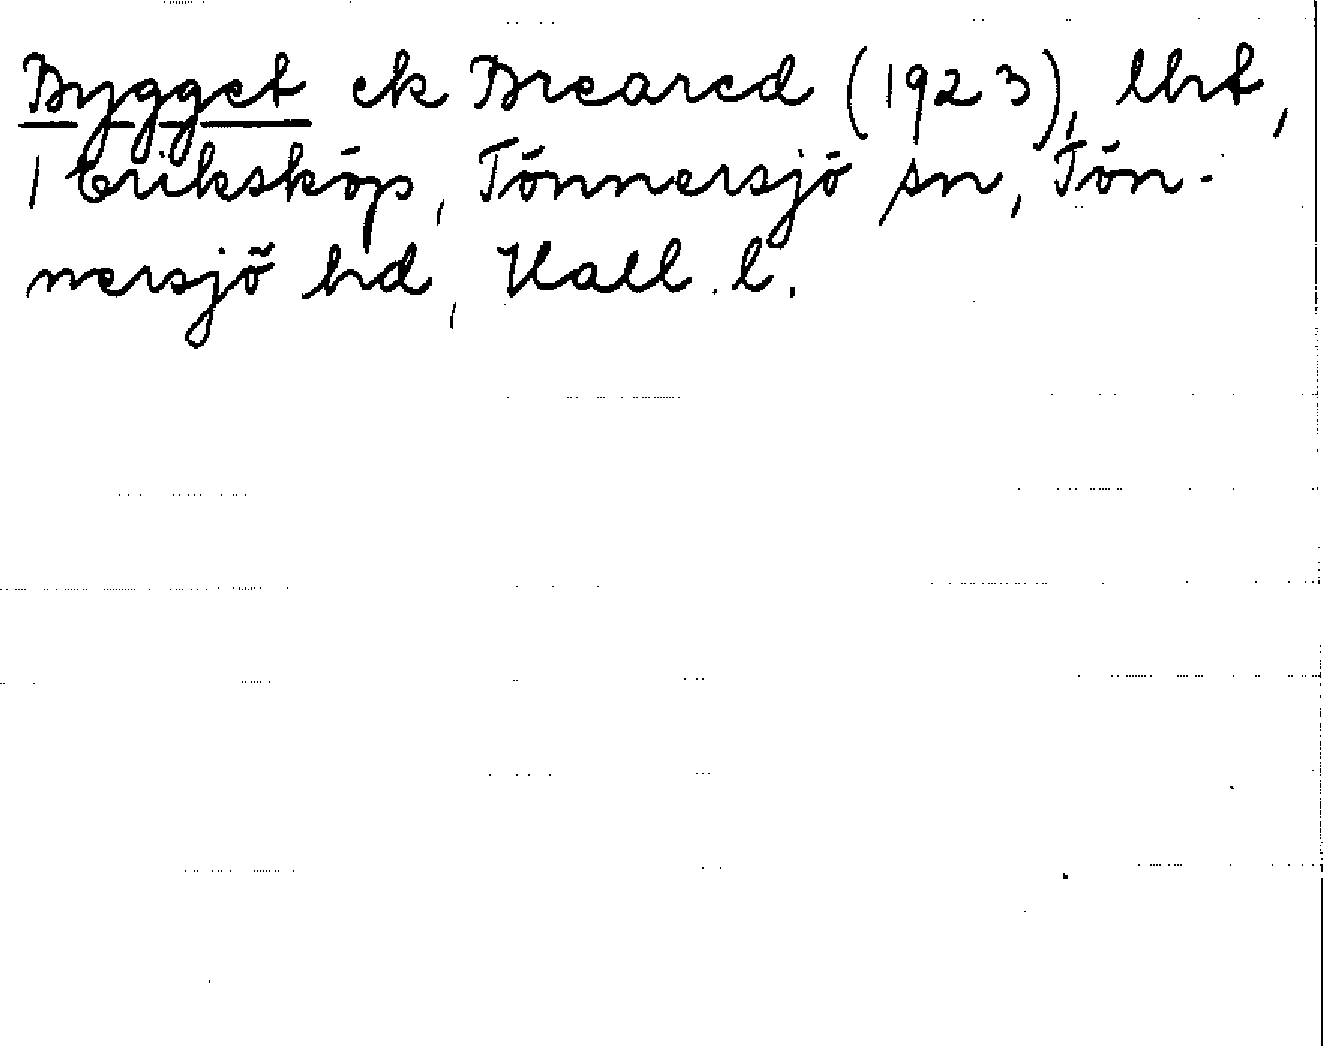 Bygget ek Breared (1923), lht,
1 Eriksköp, Tönnersjö sn, Tön-
nersjö hd, Hall. l.